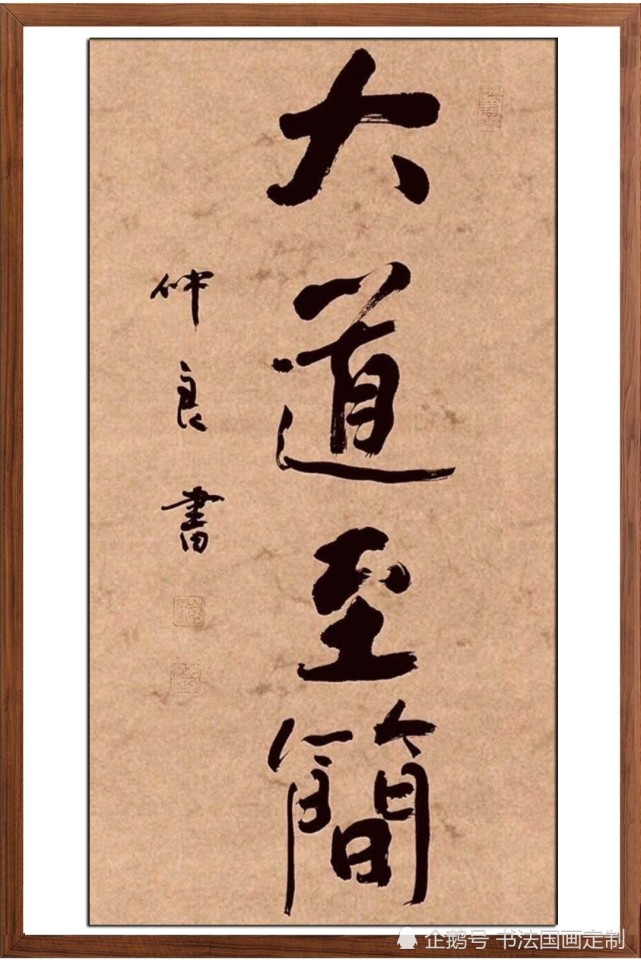 大道至簡
仲良書
企鹅号 书法国画定制